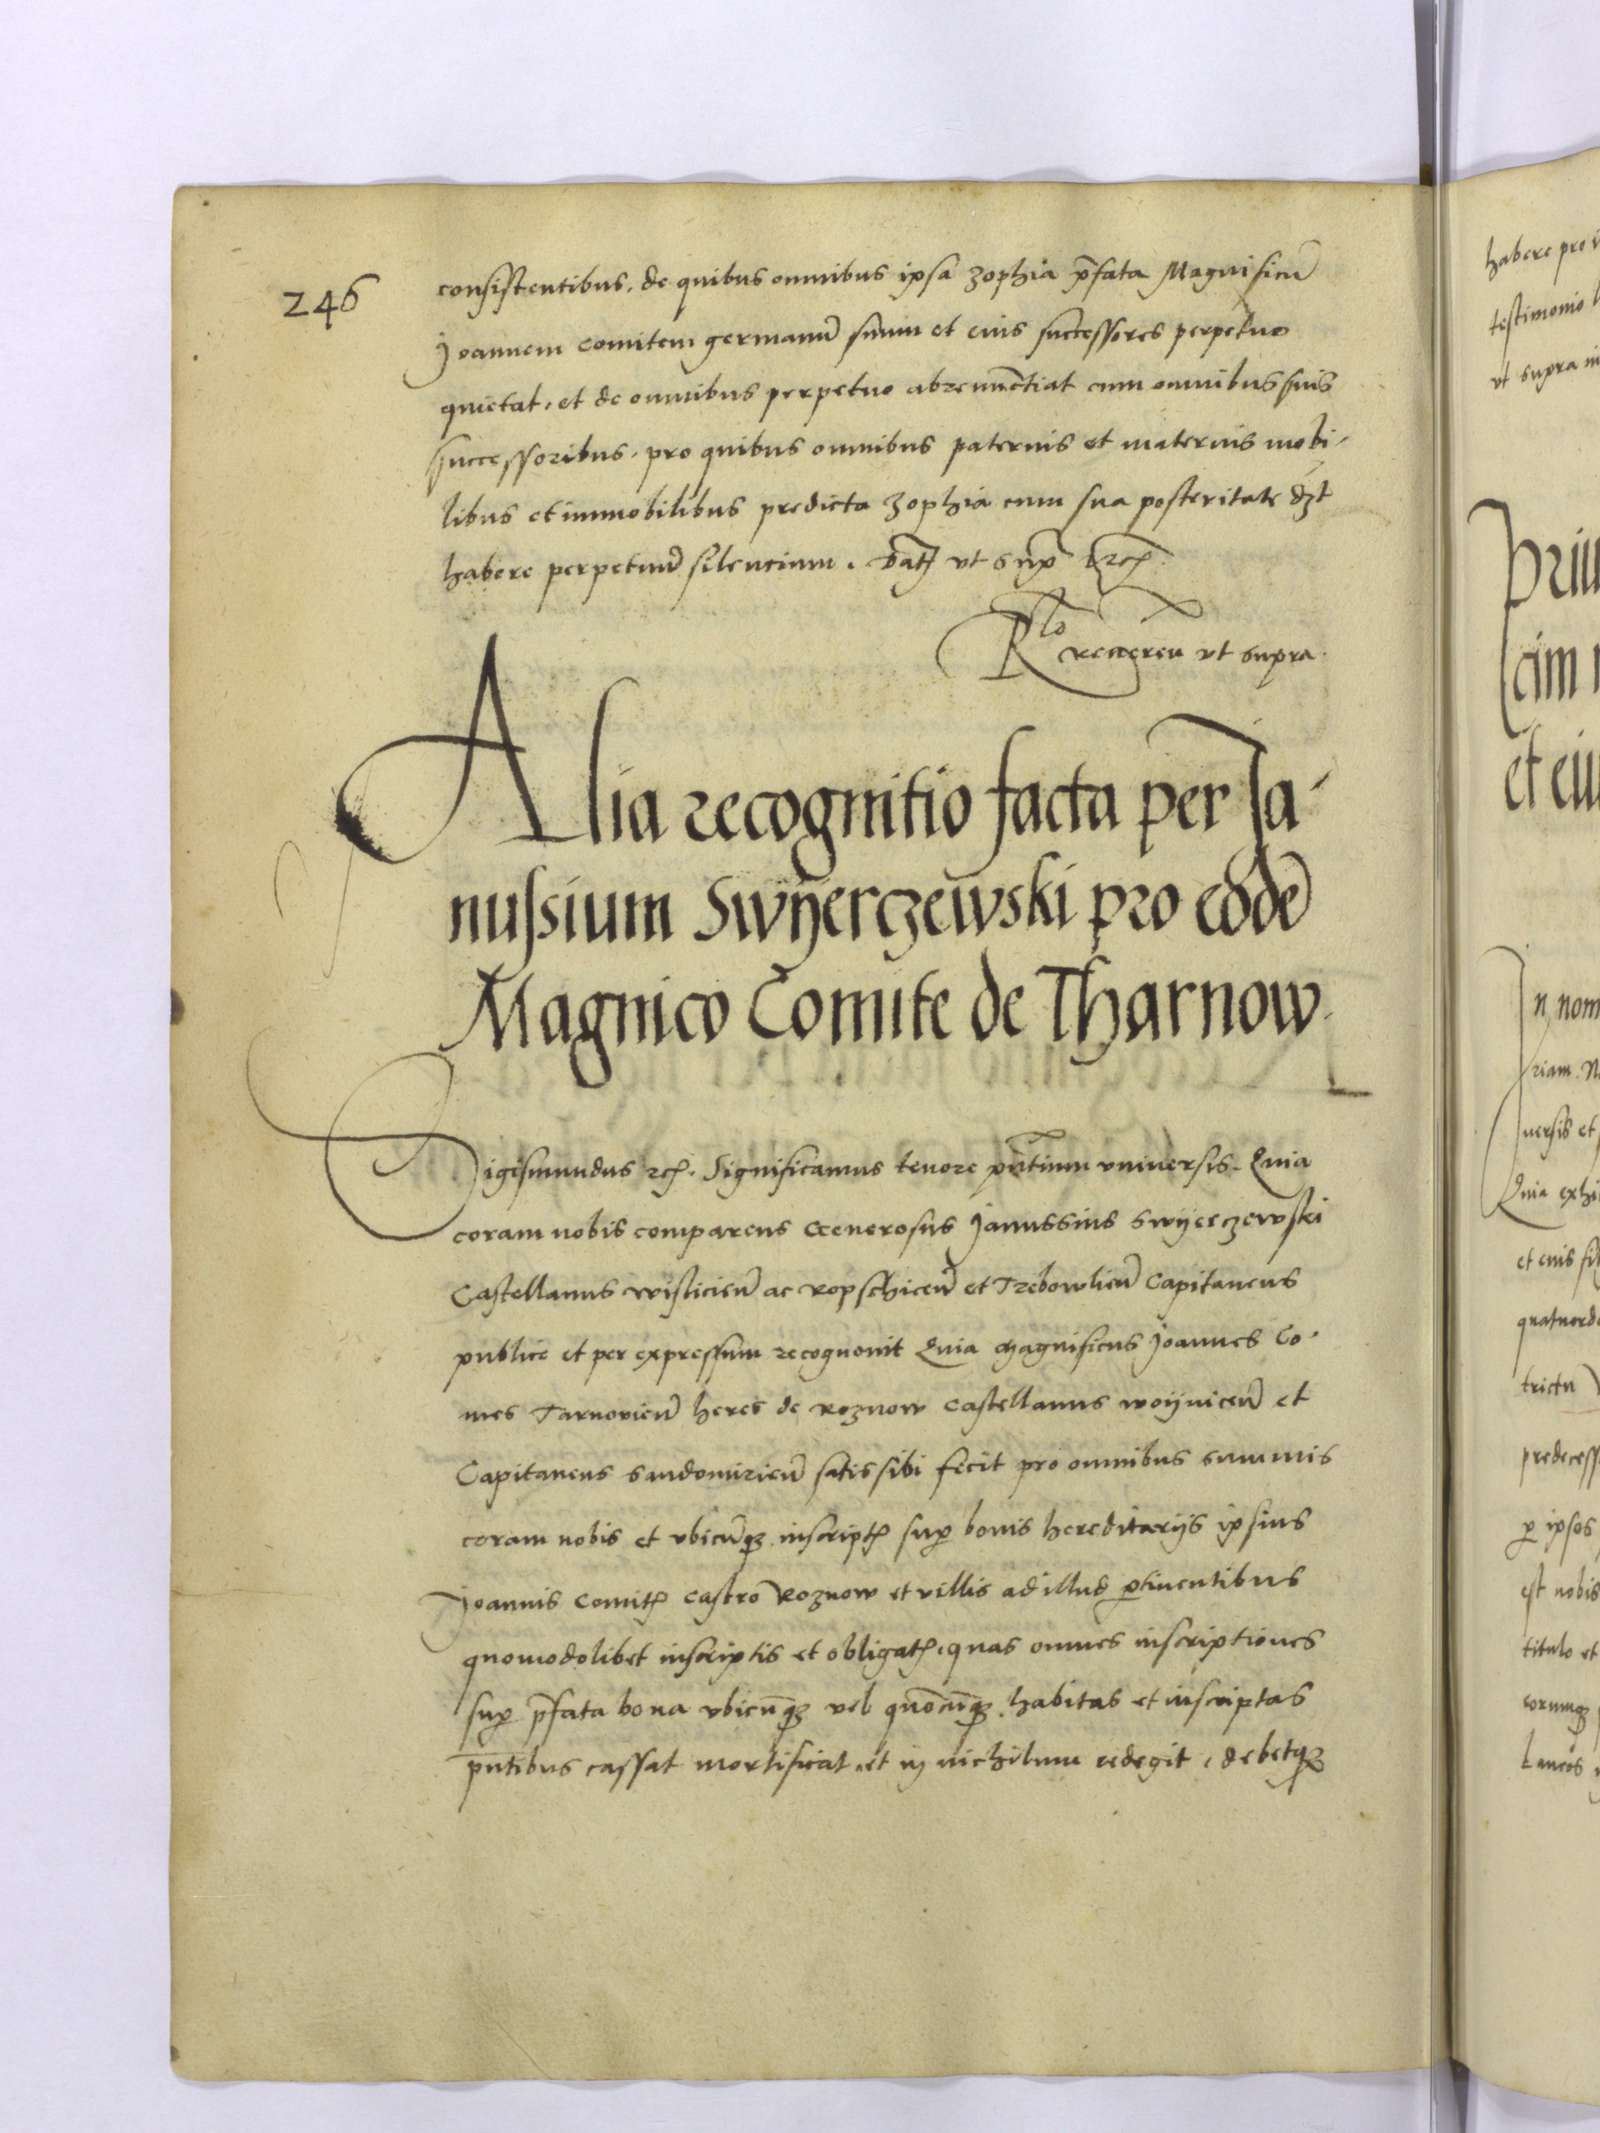 246
consistentibus, de quibus omnibus ipsa Zophia p̄fata Magnificū
Joannem comitem germanū suum et eius successores perpetuo
quietat, et de omnibus perpetuo abrenūctiat cum omnibus suis
successoribus, pro quibus omnibus paternis et maternis mobi-
libus et immobilibus predicta Zophia cum sua posteritate dz̄t
habere perpetuū silencium. Datꝭ vt sup̄
Rlo
vt supra.
Alia recognitio facta per Ja-
nussium Swyerczewski pro eodē
Magnico Comite de Tharnow.
Sigismundus rcꝭ. Significamus tenore pn̄tium vniversis. Quia
coram nobis comparens Generosus Janussius Swyerczewski
Castellanus wislicień ac ropschiceń et Trebowlień Capitaneus
publice et per expressum recognovit Quia Magnificus Joannes Co-
mes Tarnovień heres de Roznow castellanus woyniceń et
Capitaneus Sandomirień satis sibi fecit pro omnibus summis
coram nobis et vbicūqꝫ inscriptꝭ suꝑ bonis hereditariis ipsius
Joannis Comitꝭ castro Roznow et villis ad illud ꝑtinentibus
quomodolibet inscriptis et obligatꝭ, quas omnes inscriptiones
suꝑ p̄fata bona vbicūqꝫ vel quōcūqꝫ habitas et inscriptas
pn̄tibus cassat mortificat, et in nichilum redegit, debetqꝫ
habere pro
testimonio
vt supra
Priu
cim
et eiu
In nom
riam. N
versis et
Quia exhi
et eius
quatuord
trictu
predecess
ꝑ ipsos
est nobis
titulo et
eorumqꝫ
Laneos